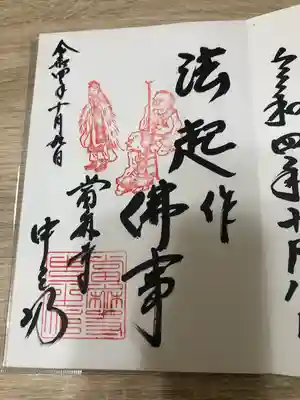 令和四年十月八日
法起作
佛事
當麻寺
中之坊
令和四年十月九日